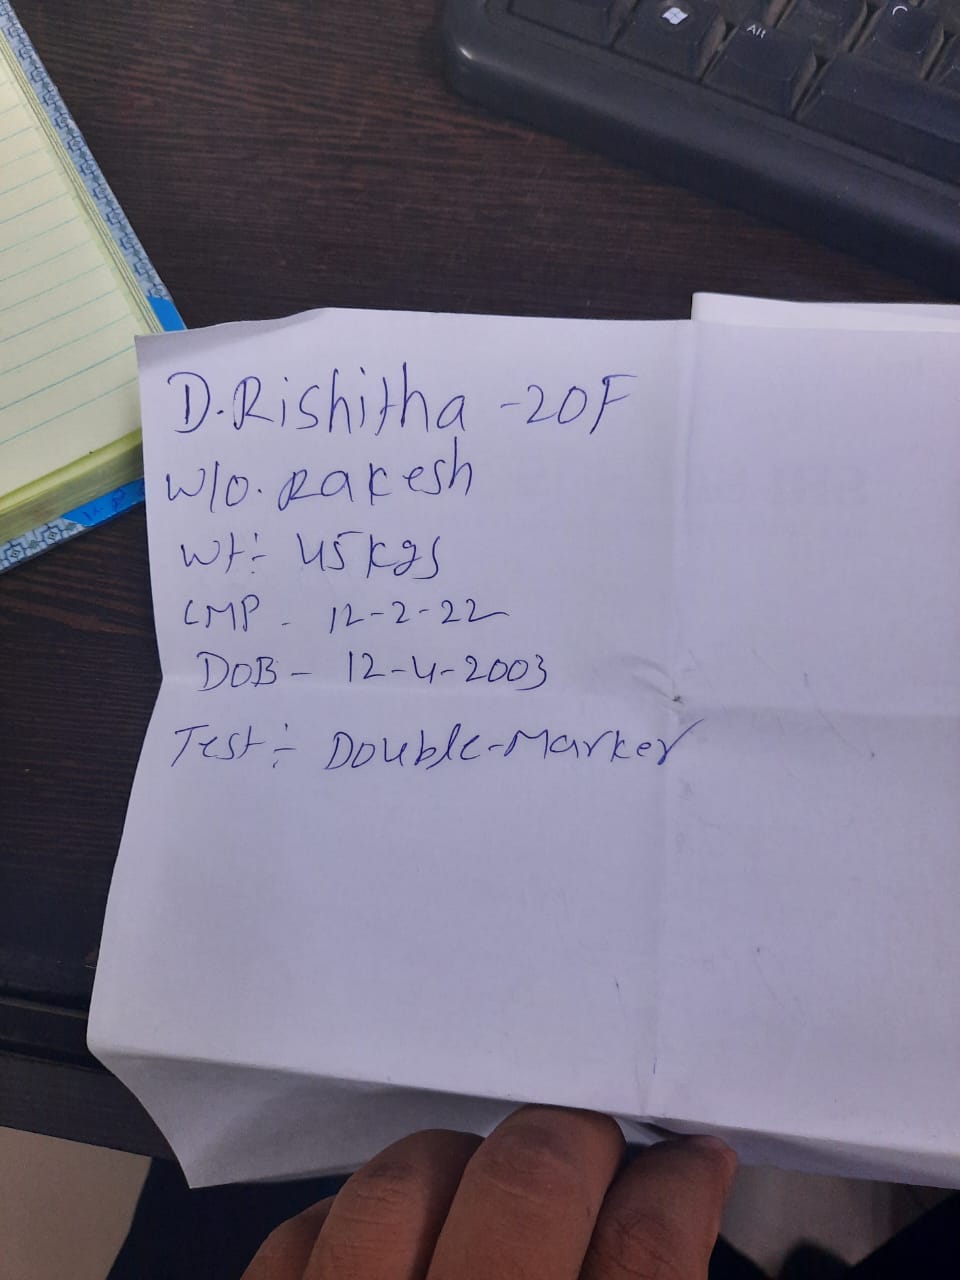 Alt
D.Rishitha -20F
W/o. Rakesh
Wt:- 45 kgs
LMP - 12-2-22
DOB - 12-4-2003
Test:- Double-Marker